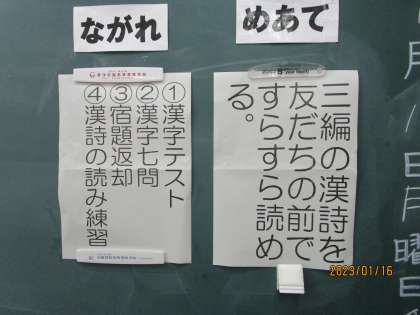 めあて
三編の漢詩を
友だちの前で
すらすら読め
る。
ながれ
①漢字テスト
②漢字七問
③宿題返却
④漢詩の読み練習
月
日
月
曜
日
2023/01/16